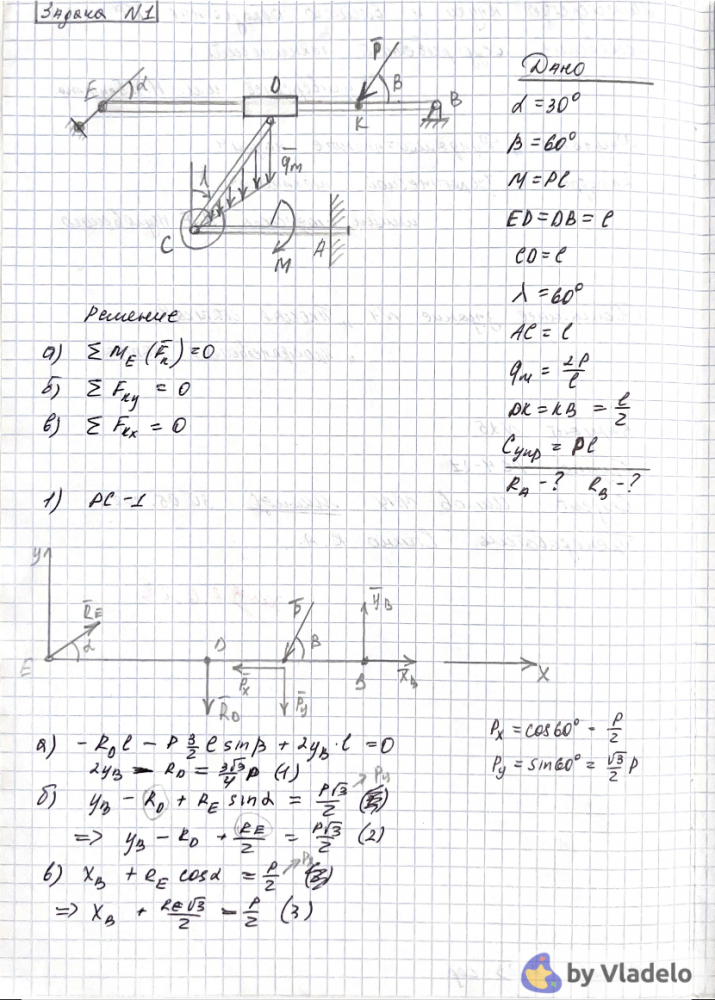 Задача N1
E α D P̄ β K B
q̄m
λ
C M A
Дано
α = 30°
β = 60°
M = Pl
ED = DB = l
CD = l
λ = 60°
AC = l
qm = 2P/l
DK = KB = l/2
Cупр = Pl
RA - ? RB - ?
Решение
а) Σ ME (F̄к) = 0
б) Σ Fкy = 0
в) Σ Fкx = 0
1) РС - 1
y R̄E α E D R̄D P̄ β P̄x P̄y ȳB B X̄B X
Px = cos60° = P/2
Py = sin60° = √3/2 P
а) - RD l - P 3/2 l sin β + 2yB · l = 0
2yB - RD = 3√3/4 P (1)
б) yB - RD + RE sin α = P√3/2 Py
=> yB - RD + RE/2 = P√3/2 (2)
в) XB + RE cos α = P/2
=> XB + RE√3/2 = P/2 (3)
by Vladelo